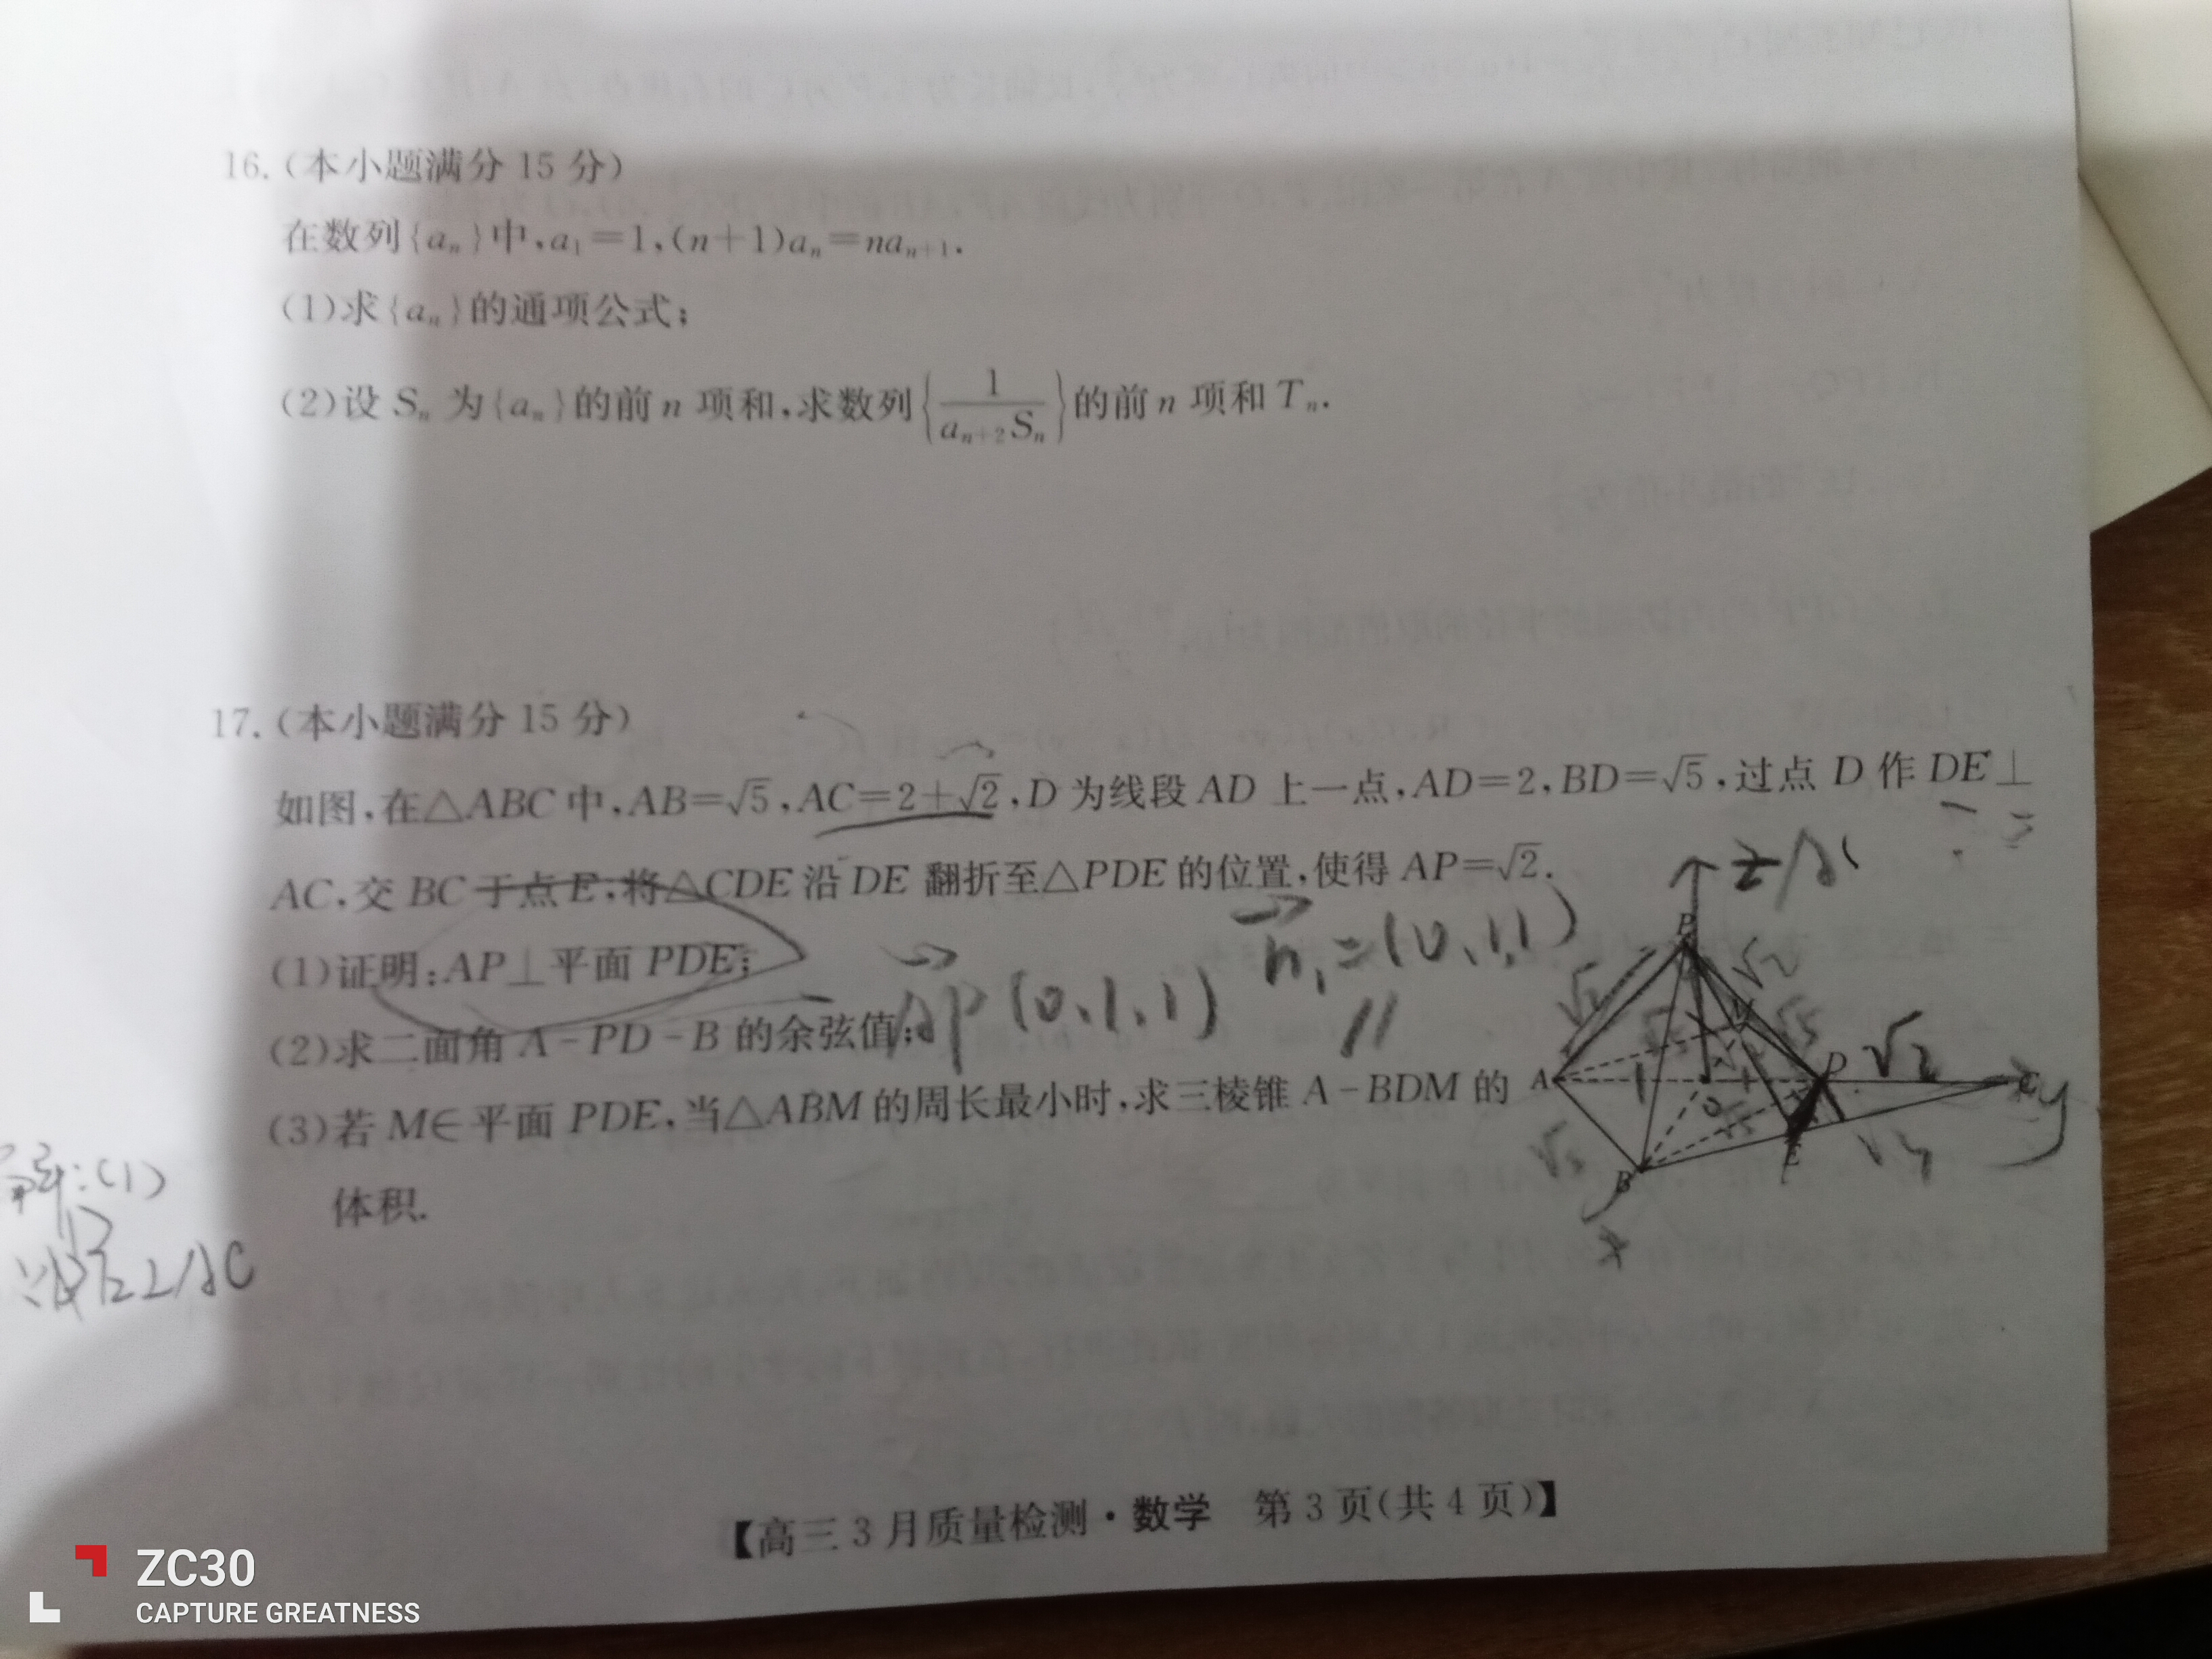 16.(本小题满分 15 分)
在数列{aₙ}中,a₁=1,(n+1)aₙ=naₙ₊₁.
(1)求{aₙ}的通项公式;
(2)设 Sₙ 为{aₙ}的前 n 项和,求数列{1/(aₙ₊₂Sₙ)}的前 n 项和 Tₙ.
17.(本小题满分 15 分)
如图,在△ABC 中,AB=√5,AC=2+√2,D 为线段 AD 上一点,AD=2,BD=√5,过点 D 作 DE⊥
AC,交 BC 于点 E,将△CDE 沿 DE 翻折至△PDE 的位置,使得 AP=√2.
(1)证明:AP⊥平面 PDE;
(2)求二面角 A-PD-B 的余弦值;
(3)若 M∈平面 PDE,当△ABM 的周长最小时,求三棱锥 A-BDM 的
体积.
AP(0,1,1)
n₁=(0,1,1)
//
z
P
√2
A
1
1
D
√2
y
B
E
x
⊥AC
【高三 3 月质量检测·数学 第 3 页(共 4 页)】
ZC30
CAPTURE GREATNESS